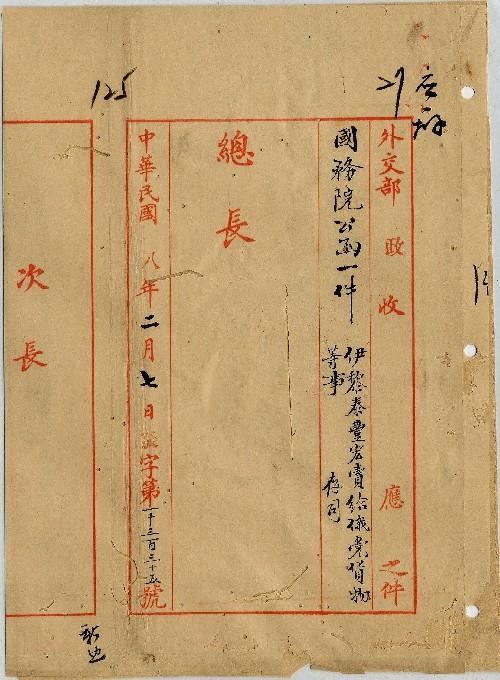 外交部 政 收 應 之件
國務院公函一件
伊犂泰豐宏賣給俄黨貨物
等事 存同
總長
中華民國八年二月七日 字第一千三百三十五號
次長
125